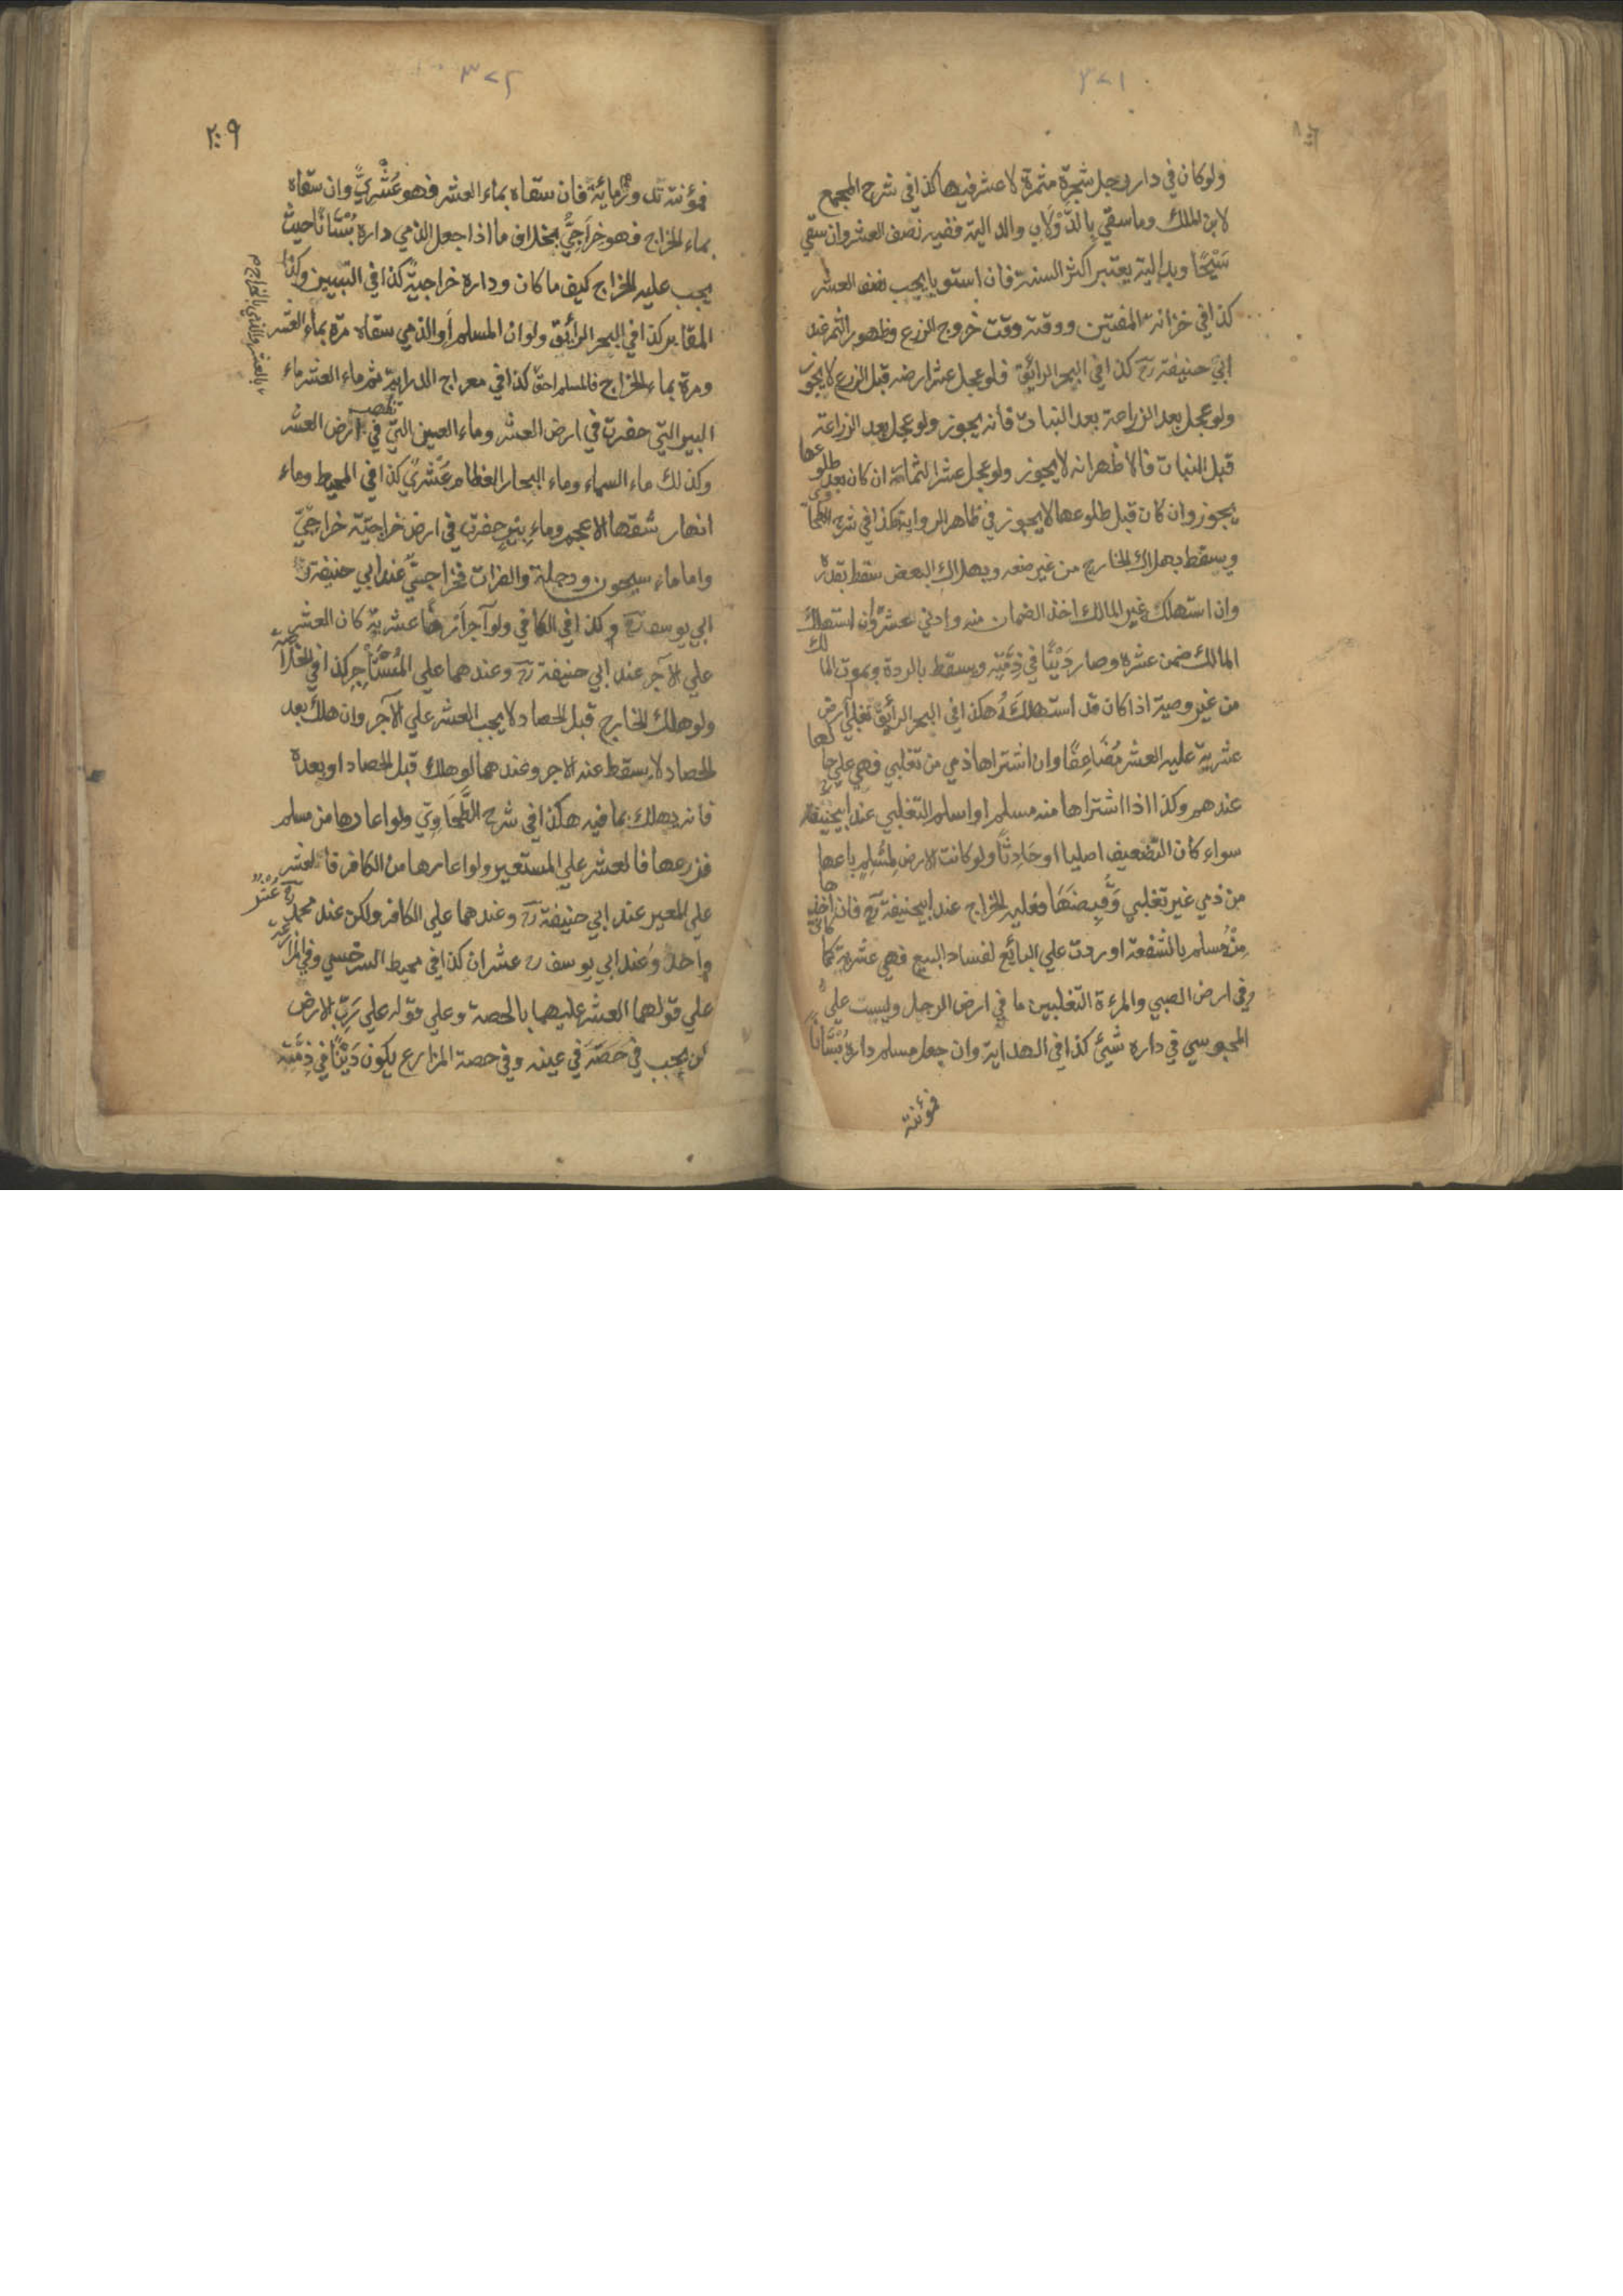 ٣٧١
ولو كان في دار رجل شجرة مثمرة لا عشر فيها كذا في شرح المجمع
لابن الملك وما سقي بالدولاب والدالية ففيه نصف العشر وان سقي
سَيْحًا وبدالية يعتبر اكثر السنة فان استويا يجب نصف العشر
كذا في خزانة المفتين ووقته وقت خروج الزرع وظهور الثمر عند
ابي حنيفة رح كذا في البحر الرائق فلو عجل عشر ارضه قبل الزرع لا يجوز
ولو عجل بعد الزراعة بعد النبات فانه يجوز ولو عجل بعد الزراعة
قبل النبات فالاظهر انه لا يجوز ولو عجل عشر الثمار ان كان بعد طلوعها
يجوز وان كان قبل طلوعها لا يجوز في ظاهر الرواية هكذا في شرح الطحاوي
ويسقط بهلاك الخارج من غير صنعه وبهلاك البعض سقط بقدره
وان استهلك غير المالك اخذ الضمان منه وادي عشره وان استهلك
المالك ضمن عشره وصار دَيْنًا في ذِمَّتِه ويسقط بالردة وبموت المالك
من غير وصية اذا كان قد استهلكَهُ هكذا في البحر الرائق تغلبي ارض
عشرية عليه العشر مُضَاعِفًا وان اشتراها ذمي من تغلبي فهي علي حالها
عندهم وكذا اذا اشتراها منه مسلم او اسلم التغلبي عند ابيحنيفة رح
سواء كان التضعيف اصليا او حَادِثًا ولو كانت الارض لمُسْلِمٍ باعها
من ذمي غير تغلبي وَقَبِضَهَا فعليه الخراج عند ابيحنيفة رح فان اخذها
مِنْ مُسلم بالشفعة او ردت علي البائع لفساد البيع فهي عشرية كما كانت
وفي ارض الصبي والمرءة التغلبيين ما في ارض الرجل وليست علي
المجوسي في داره شيئ كذا في الهداية وان جعل مسلم داره بُسْتَانًا
فمؤنته
٣٧٢
٢٠٩
فمؤنته تدور مع مائه فان سقاه بماء العشر فهو عُشْرِيٌّ وان سقاه
بماء الخراج فهو خراجيٌّ بخلاف ما اذا جعل الذمي داره بُسْتَانًا حيث
يجب عليه الخراج كيف ما كان وداره خراجية كذا في التبيين وكذا
المقابر كذا في البحر الرائق ولو ان المسلم او الذمي سقاه مرة بماء العشر
ومرة بماء الخراج فالمسلم احق كذا في معراج الدراية ثم ماء العشر ماء
بالعشر والذمي بالخراج م
البير التي حفرت في ارض العشر وماء العين التي تظهر في ارض العشر
وكذلك ماء السماء وماء البحار العظام عشريٌ كذا في المحيط وماء
انهار شقها الاعجم وماء بئرٍ حفرت في ارض خراجيّة خراجيّ
واما ماء سيحون ودجلة والفرات فخراجيّ عند ابي حنيفة و
ابي يوسف رح وكذا في الكافي ولو آجر ارضًا عشرية كان العشر
علي الآجر عند ابي حنيفة رح وعندهما علي المُسْتَأْجِر كذا في الخلاصة
ولو هلك الخارج قبل الحصاد لا يجب العشر علي الآجر وان هلك بعد
الحصاد لا يسقط عنه الاجر وعندهما لو هلك قبل الحصاد او بعده
فانه يهلك بما فيه هكذا في شرح الطَّحَاوِي ولو اعارها من مسلم
فزرعها فالعشر علي المستعير ولو اعارها من الكافر فالعشر
علي المعير عند ابي حنيفة رح وعندهما علي الكافر ولكن عند محمد رح عُشْرٌ
واحدٌ وعند ابي يوسف رح عشران كذا في محيط السرخسي وفي المزارعة
علي قولهما العشر عليهما بالحصة وعلي قوله علي رَبِّ الارض
لكن يجب في حصته في عينه وفي حصة المزارع يكون دَيْنًا في ذِمَّتِه